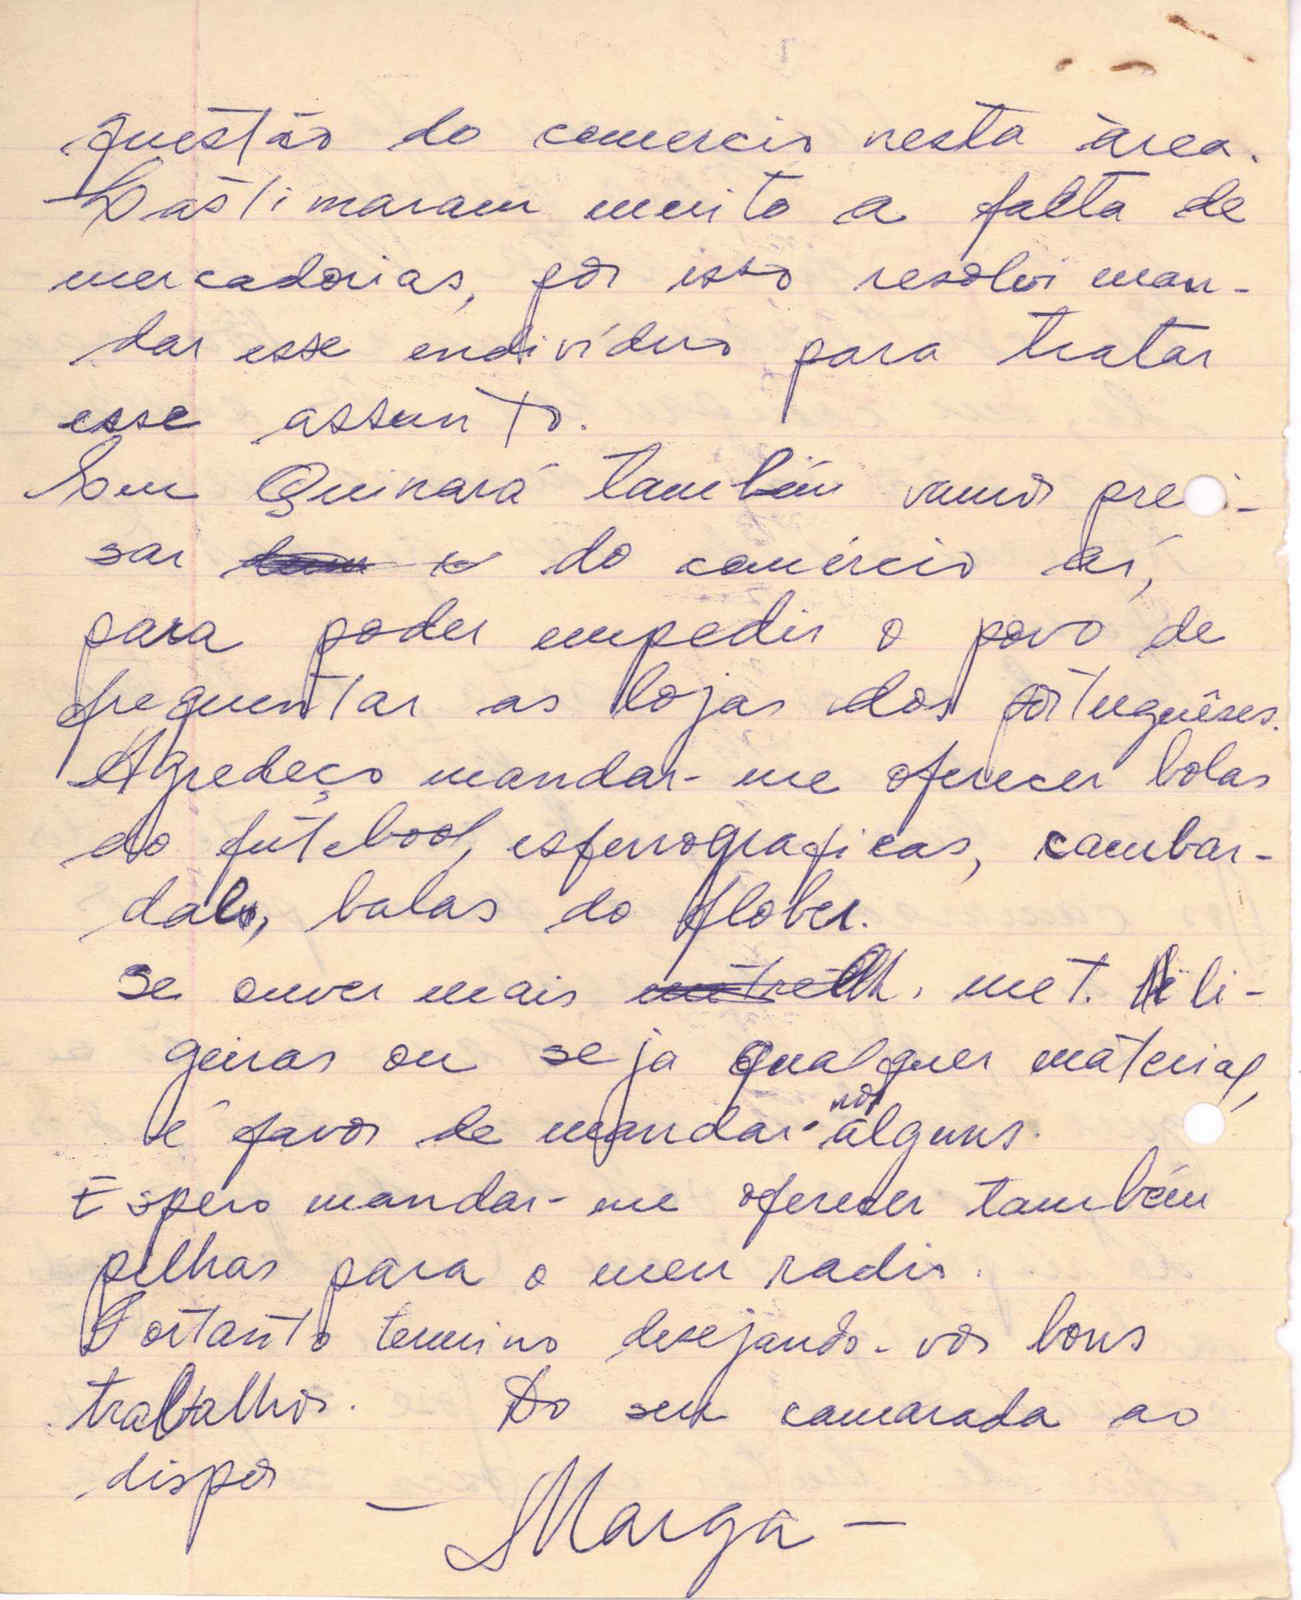 questão do comercio nesta àrea.
Lastimaram muito a falta de
mercadorias, por isso resolvi man-
dar esse endivíduo para tratar
esse assunto.
Em Quinará também vamos preci-
sar do comércio aí,
para poder empedir o povo de
frequentar as lojas dos portuguêses.
Agredeço mandar-me oferecer bolas
do fútebool, esferrograficas, cambar-
dals, balas do flober.
Se ouver mais met. li-
geiras ou seja qualquer material,
é favor de mandar-nos alguns.
Espero mandar-me oferecer também
pilhas para o meu radio.
Portanto termino desejando-vos bons
trabalhos. Do seu camarada ao
dispor
- Marga -